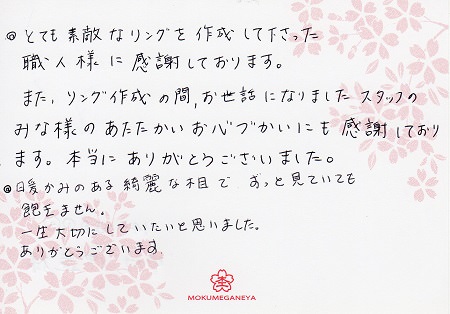 ◎とても素敵なリングを作成して下さった
職人様に感謝しております。
また、リング作成の間、お世話になりましたスタッフの
みな様のあたたかいお心づかいにも感謝しており
ます。本当にありがとうございました。
◎暖かみのある綺麗な木目で ずっと見ていても
飽きません。
一生大切にしていたいと思いました。
ありがとうございます。
MOKUMEGANEYA